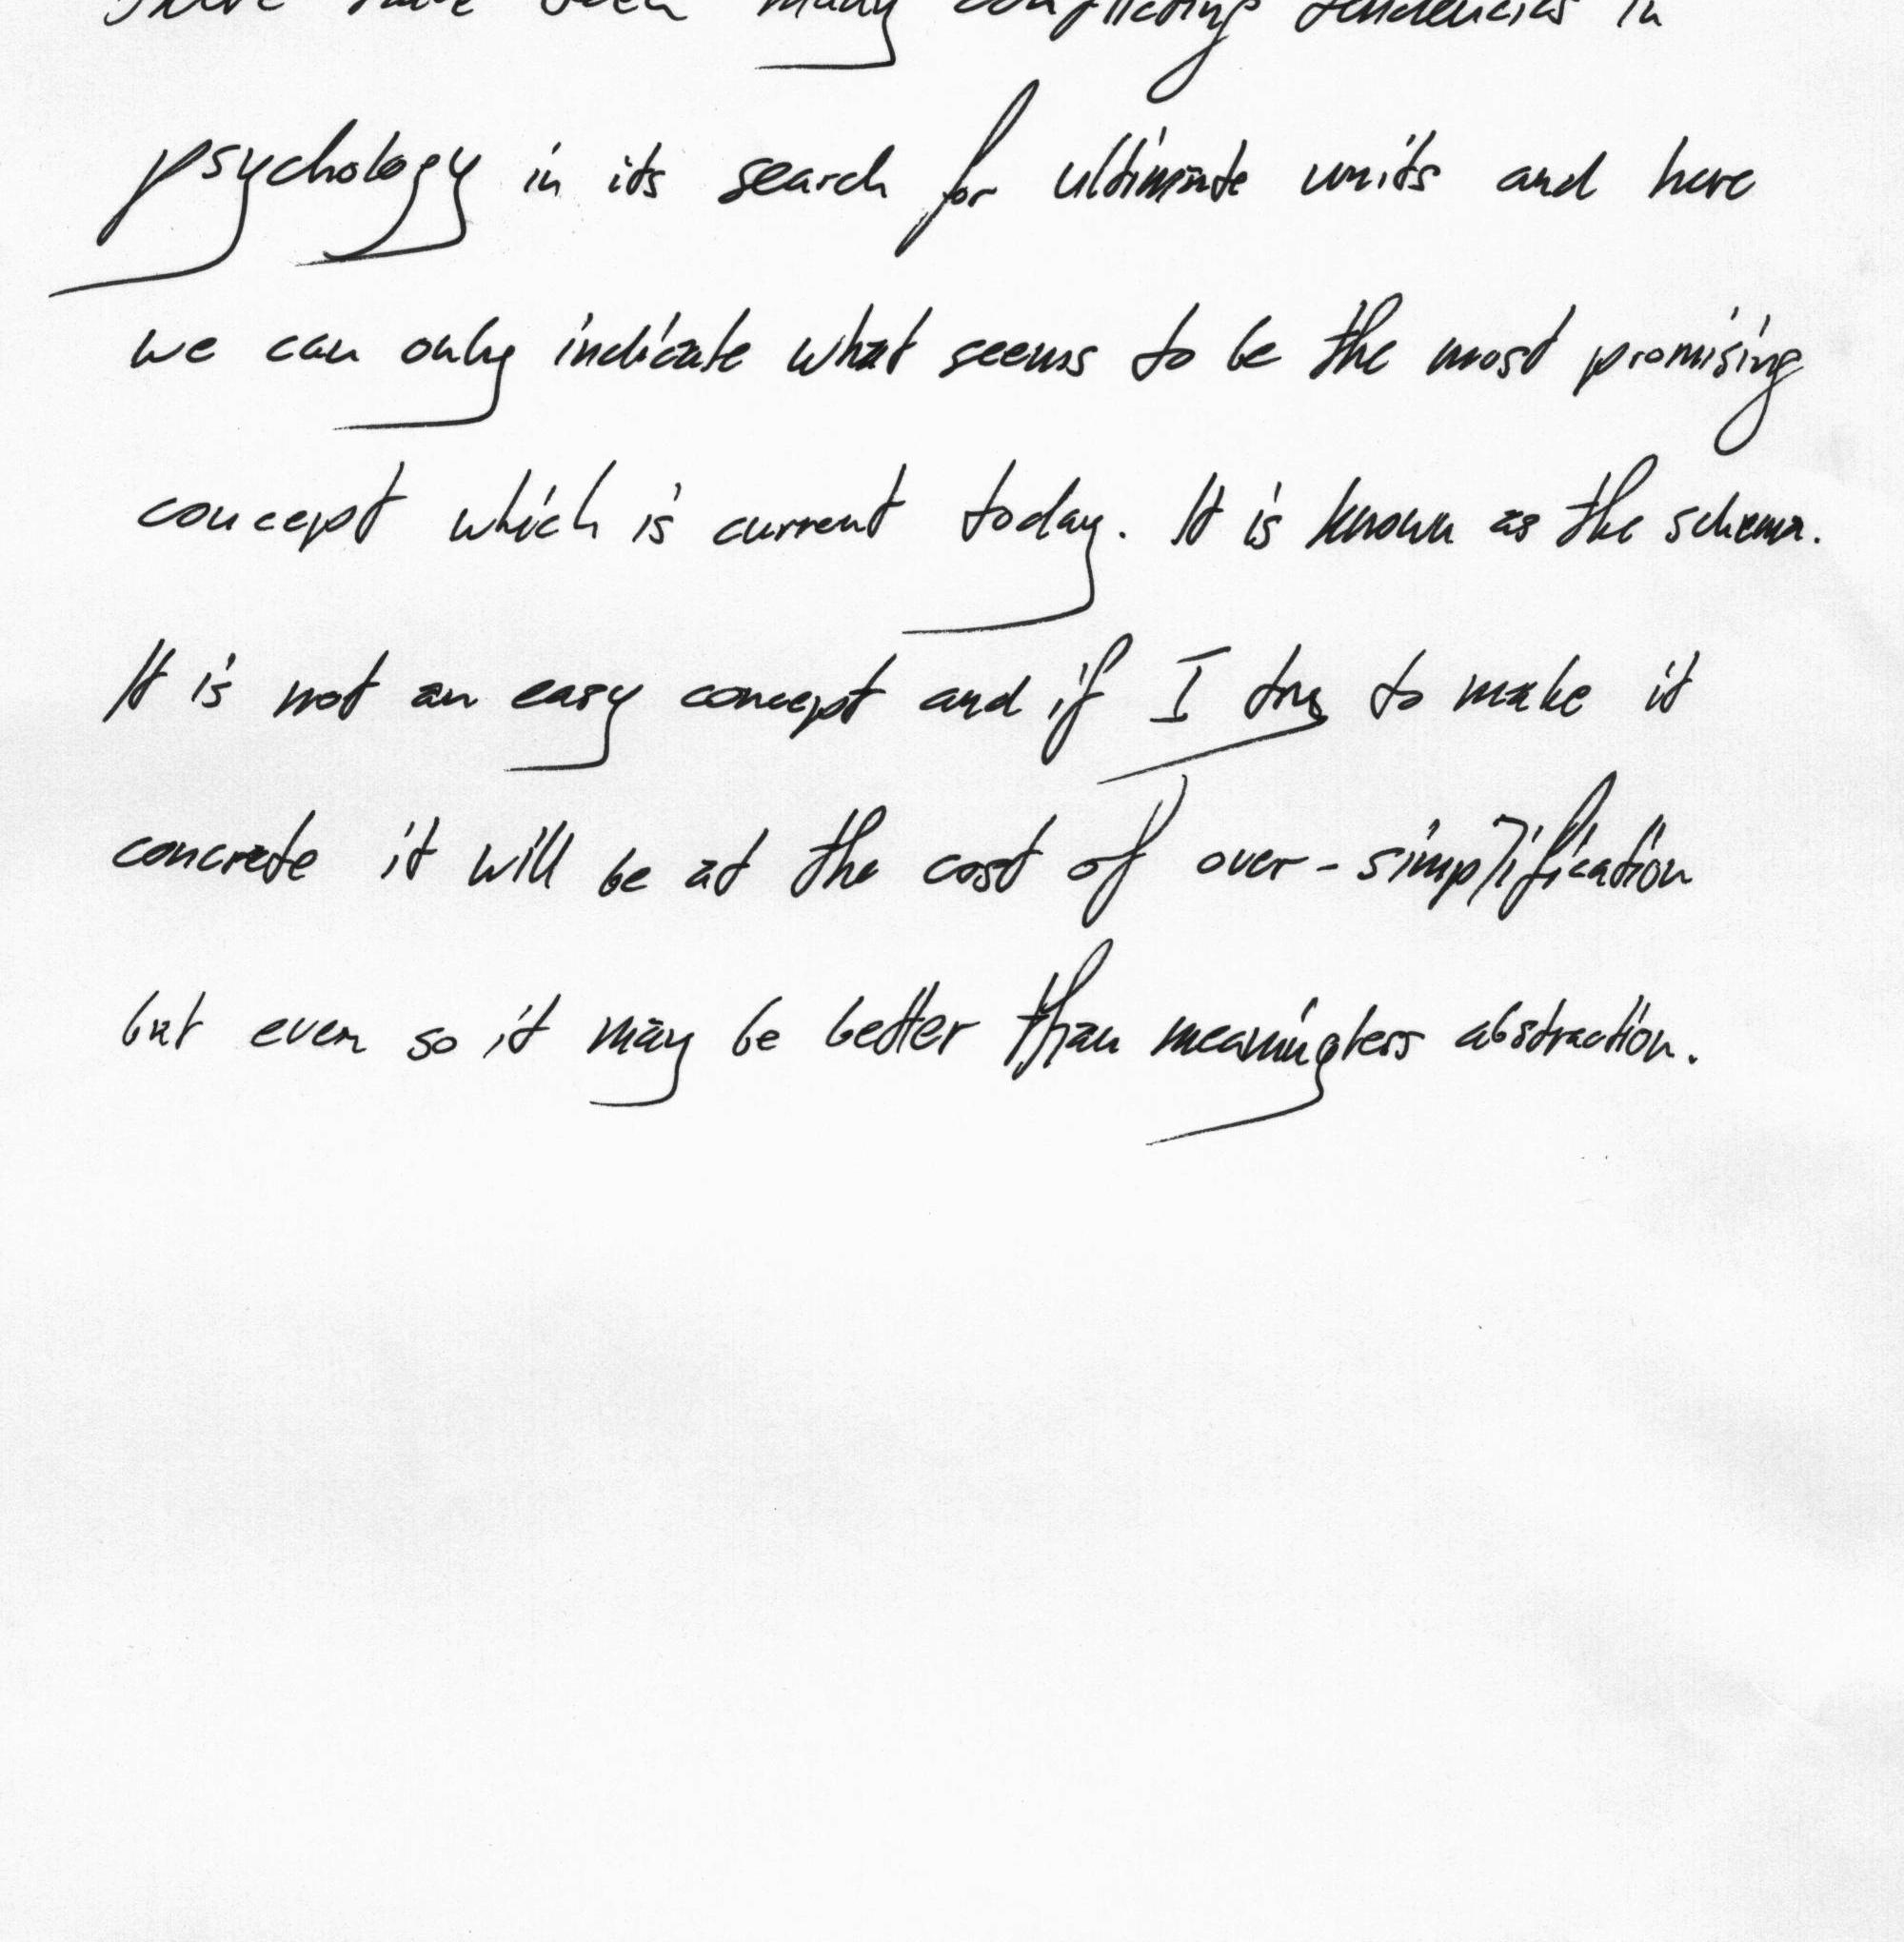 There have been many conflicting tendencies in
psychology in its search for ultimate units and here
we can only indicate what seems to be the most promising
concept which is current today. It is known as the schema.
It is not an easy concept and if I try to make it
concrete it will be at the cost of over-simplification
but even so it may be better than meaningless abstraction.